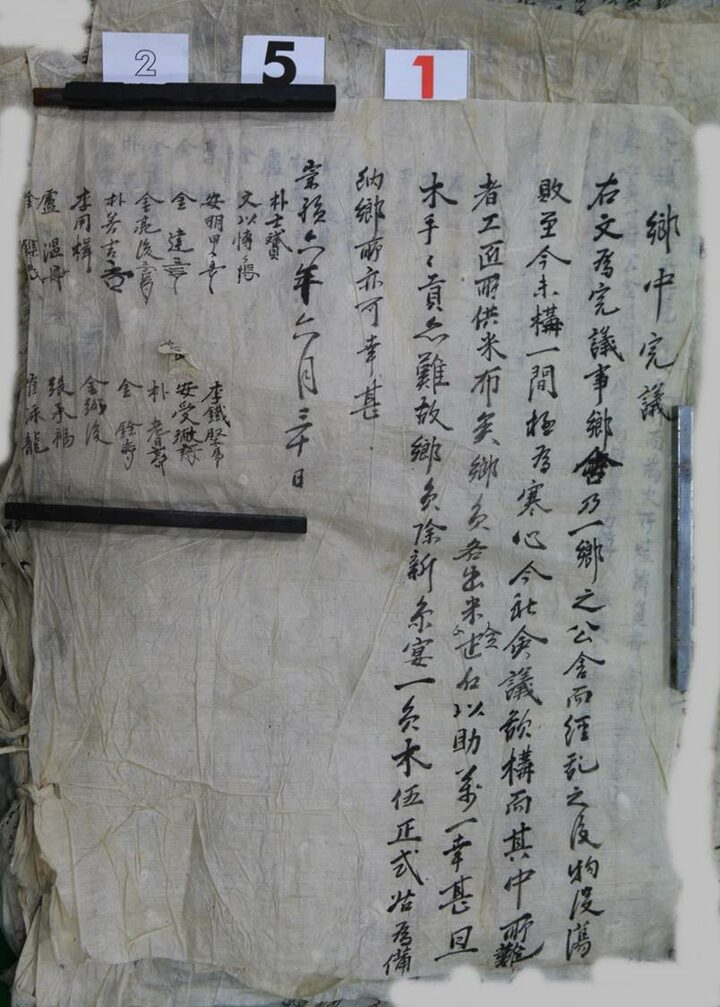 2
5
1
鄕中完議
右文爲完議事鄕舍乃一鄕之公舍而經亂之後物役蕩
敗至今未構一間極爲寒心今社會議欲構而其中所難
者工匠所供米布矣鄕員各出米 以助萬一幸甚且
木手手貢亦難故鄕員除新參宴一員木伍疋式 爲備
納鄕所亦可幸甚
崇禎六年六月三十日
朴士贇
文以博
安明甲
金達
金亮俊
朴善吉
李用楫
盧溫
金
李鐵堅
安受
朴
金
金
張承福
龍